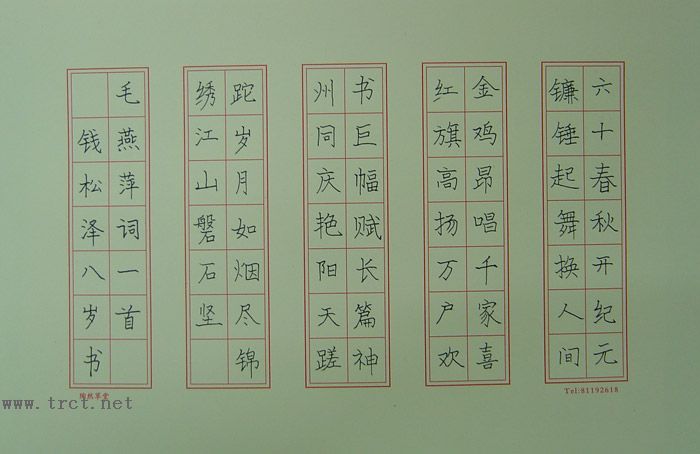 六十春秋开纪元
镰锤起舞换人间
金鸡昂唱千家喜
红旗高扬万户欢
书巨幅赋长篇神
州同庆艳阳天蹉
跎岁月如烟尽锦
绣江山磐石坚
毛燕萍词一首
钱松泽八岁书
陶然草堂
Tel:81192618
www.trct.net